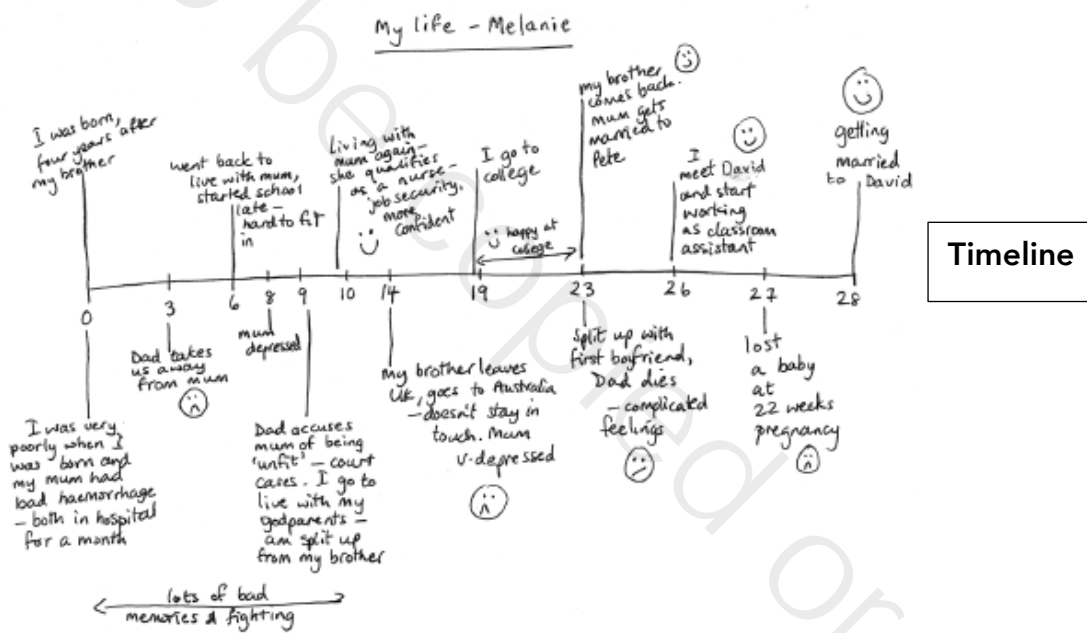 My life - Melanie
I was born,
four years after
my brother
went back to
live with mum,
started school
late -
hard to fit
in
living with
mum again -
she qualifies
as a nurse -
job security.
more
confident
I go to
college
happy at
college
my brother
comes back.
mum gets
married to
Pete
I
meet David
and start
working
as classroom
assistant
getting
married
to David
Timeline
0
3
6
8
9
10
14
19
23
26
27
28
I was very
poorly when I
was born and
my mum had
bad haemorrhage
- both in hospital
for a month
Dad takes
us away
from mum
mum
depressed
Dad accuses
mum of being
'unfit' - court
cases. I go to
live with my
godparents -
am split up
from my brother
my brother leaves
UK, goes to Australia
- doesn't stay in
touch. Mum
v. depressed
Split up with
first boyfriend,
Dad dies
- complicated
feelings
lost
a baby
at
22 weeks
pregnancy
lots of bad
memories & fighting
be copied or